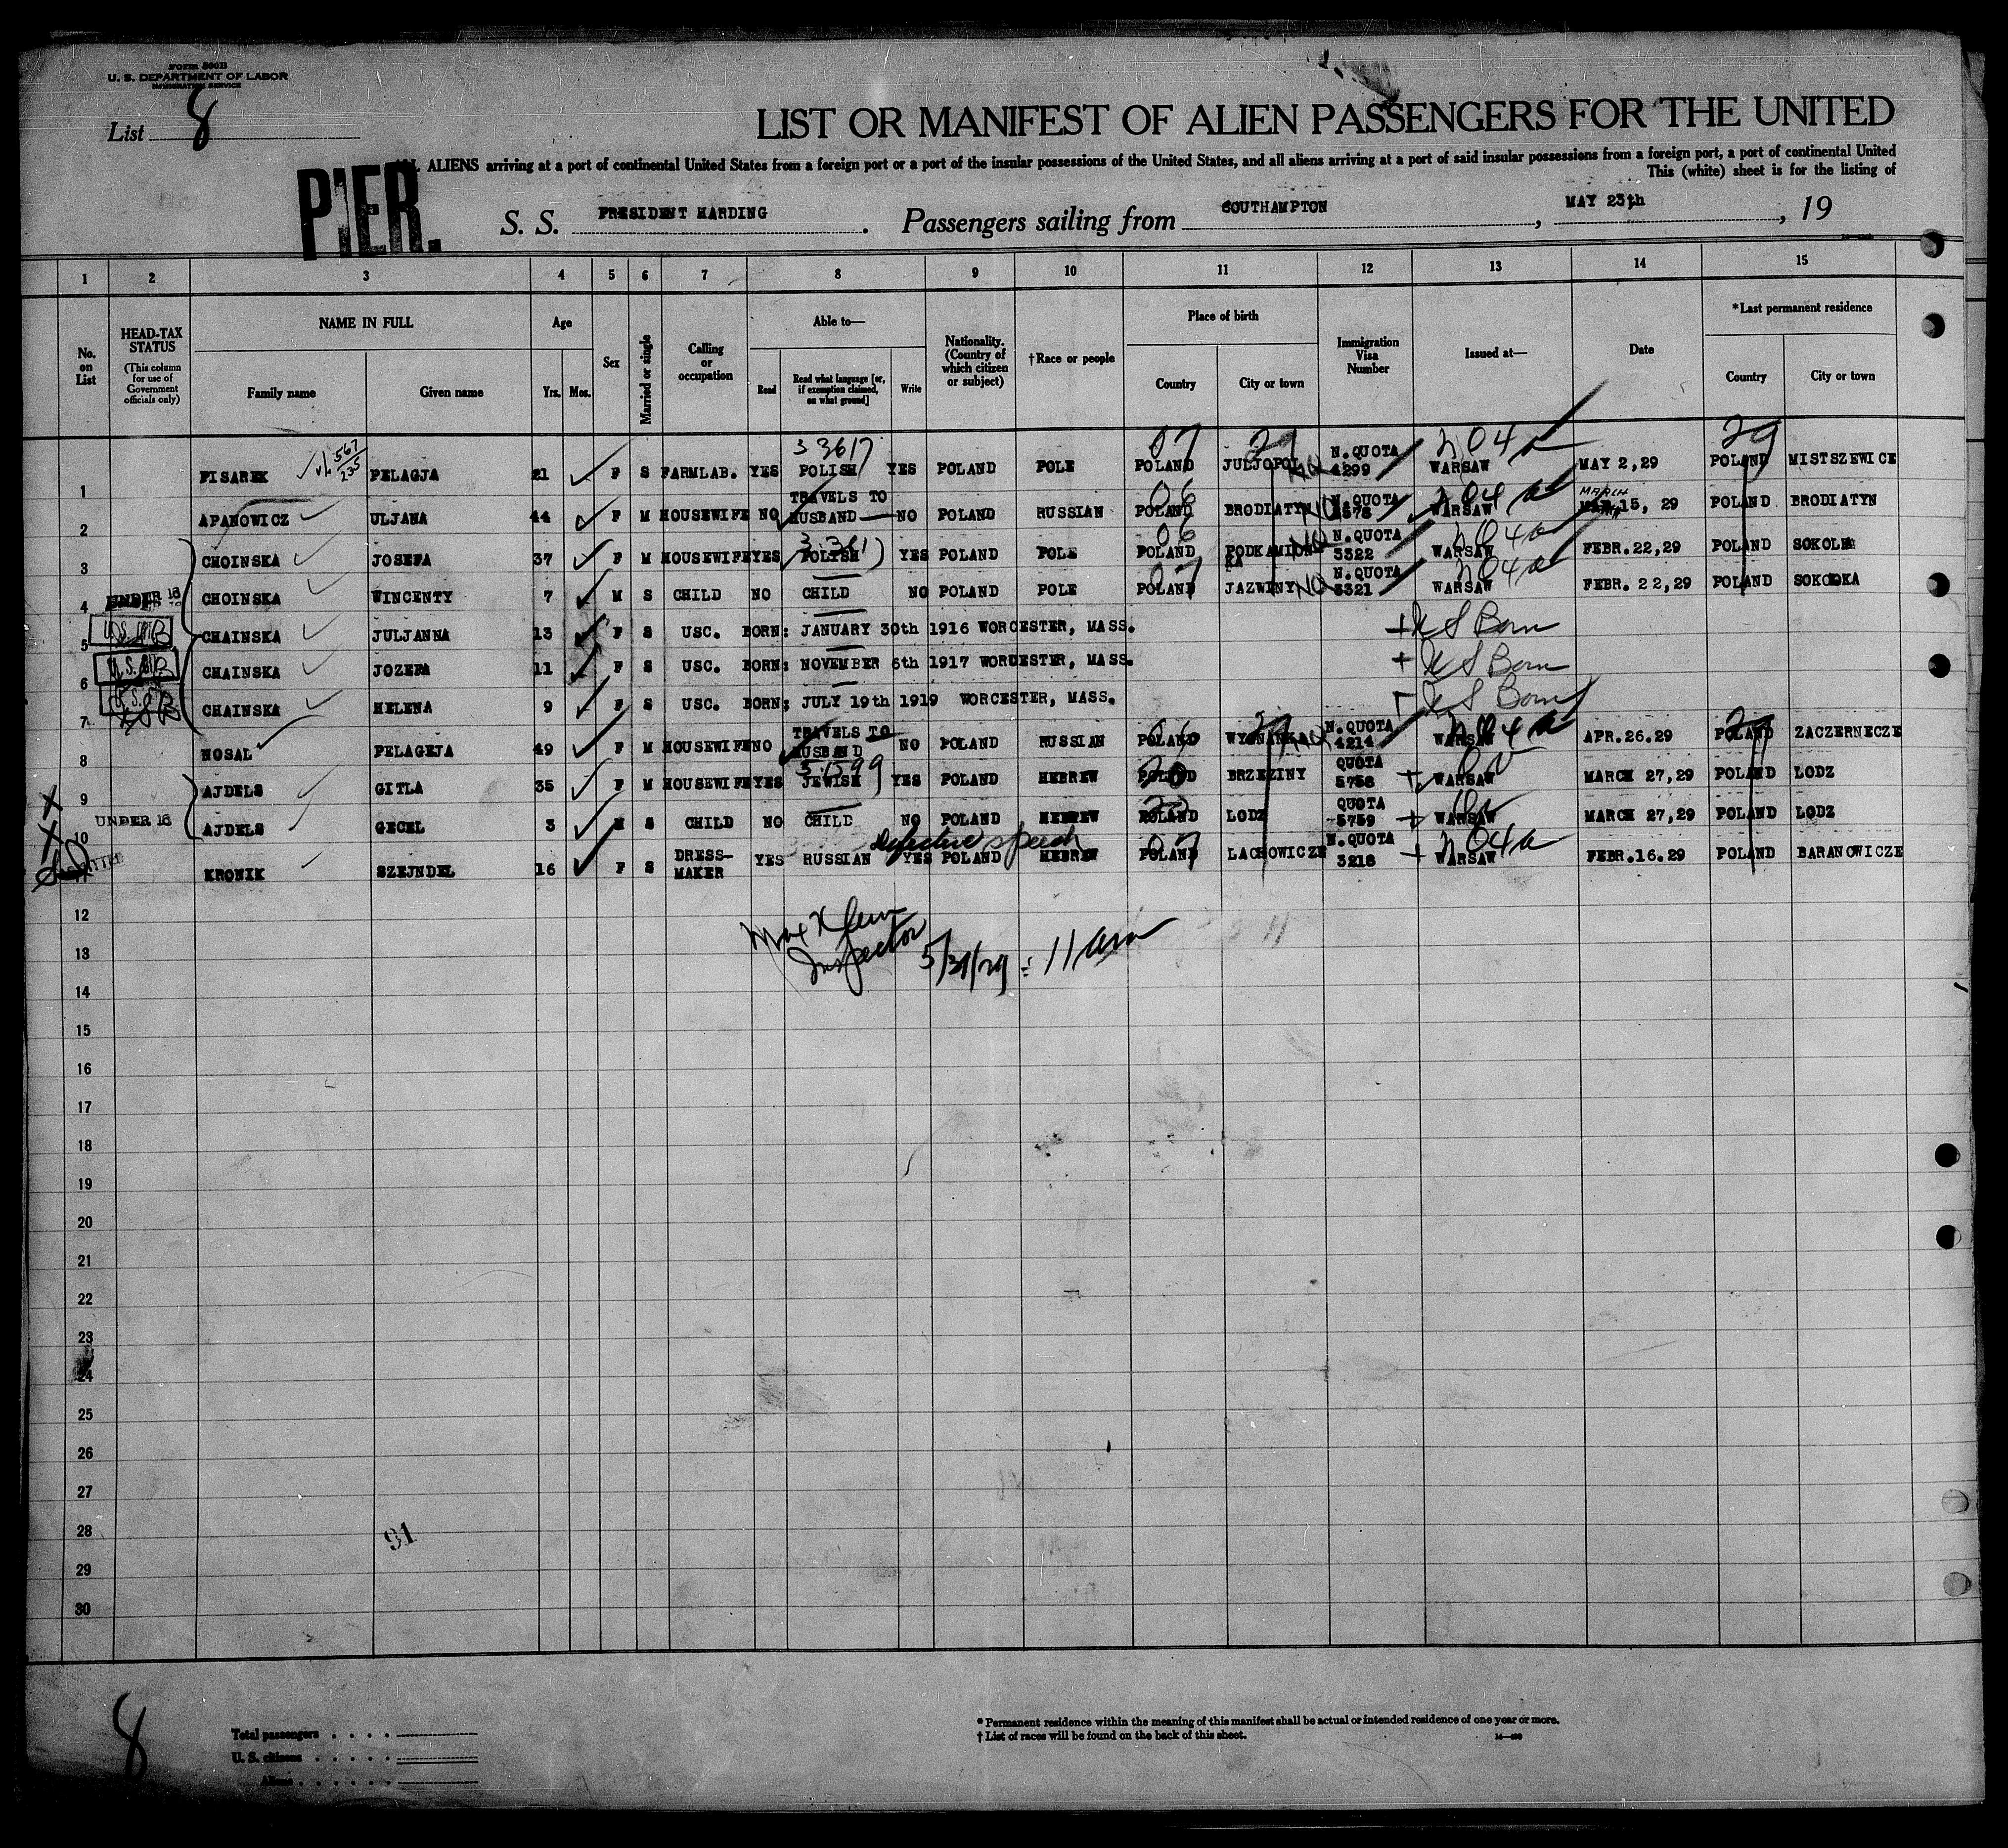 Form 500B
U. S. DEPARTMENT OF LABOR
IMMIGRATION SERVICE
List 8
LIST OR MANIFEST OF ALIEN PASSENGERS FOR THE UNITED
ALIENS arriving at a port of continental United States from a foreign port or a port of the insular possessions of the United States, and all aliens arriving at a port of said insular possessions from a foreign port, a port of continental United
This (white) sheet is for the listing of
PIER.
S. S. PRESIDENT HARDING. Passengers sailing from SOUTHAMPTON, MAY 23th, 19
1 2 3 4 5 6 7 8 9 10 11 12 13 14 15
No. on List
HEAD-TAX STATUS (This column for use of Government officials only)
NAME IN FULL
Family name Given name
Age
Yrs. Mos.
Sex
Married or single
Calling or occupation
Able to—
Read Read what language [or, if exemption claimed, on what ground] Write
Nationality. (Country of which citizen or subject)
†Race or people
Place of birth
Country City or town
Immigration Visa Number
Issued at—
Date
*Last permanent residence
Country City or town
1 PISAREK 567/235 PELAGJA 21 F S FARMLAB. YES 3 3617 POLISH YES POLAND POLE 07 POLAND JULJOPOL NQ N.QUOTA 4299 WARSAW MAY 2,29 29 POLAND MISTSZEWICE
2 APANOWICZ ULJANA 44 F M HOUSEWIFE NO TRAVELS TO HUSBAND NO POLAND RUSSIAN 06 POLAND BRODIATYN NQ N.QUOTA WARSAW MARCH 15, 29 POLAND BRODIATYN
3 CHOINSKA JOSEFA 37 F M HOUSEWIFE YES POLISH YES POLAND POLE 06 POLAND PODKAMIONKA NQ N.QUOTA 3322 WARSAW FEBR.22,29 POLAND SOKOLKA
4 UNDER 16 CHOINSKA WINCENTY 7 M S CHILD NO CHILD NO POLAND POLE 07 POLAND JAZWINY NQ N.QUOTA 3321 WARSAW FEBR. 22,29 POLAND SOKOLKA
5 CHAINSKA JULJANNA 13 F S USC. BORN: JANUARY 30th 1916 WORCESTER, MASS. U S Born
6 CHAINSKA JOZEFA 11 F S USC. BORN: NOVEMBER 6th 1917 WORCESTER, MASS. U S Born
7 CHAINSKA HELENA 9 F S USC. BORN: JULY 19th 1919 WORCESTER, MASS. U S Born
8 NOSAL PELAGEJA 49 F M HOUSEWIFE NO TRAVELS TO HUSBAND NO POLAND RUSSIAN POLAND WYGNANKA NQ N.QUOTA 4214 WARSAW APR.26.29 POLAND ZACZERNECZE
9 AJDELS GITLA 35 F M HOUSEWIFE YES JEWISH YES POLAND HEBREW POLAND BRZEZINY QUOTA 5758 WARSAW MARCH 27,29 POLAND LODZ
10 UNDER 16 AJDELS GECEL 3 M S CHILD NO CHILD NO POLAND HEBREW POLAND LODZ QUOTA 5759 WARSAW MARCH 27,29 POLAND LODZ
Defective speech
KRONIK SZEJNDEL 16 F S DRESS-MAKER YES RUSSIAN YES POLAND HEBREW 07 POLAND LACHOWICZE N.QUOTA 3218 WARSAW FEBR.16.29 POLAND BARANOWICZE
12
Inspector 5/31/29 : 11 am
13
14
15
16
17
18
19
20
21
22
23
24
25
26
27
28
91
29
30
8
Total passengers
U. S. citizens
Aliens
* Permanent residence within the meaning of this manifest shall be actual or intended residence of one year or more.
† List of races will be found on the back of this sheet.